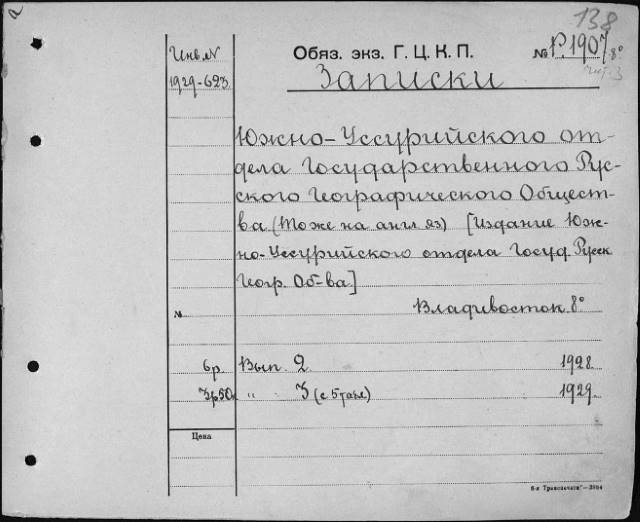 138
Инв. №
1929-623
Обяз. экз. Г. Ц. К. П.
№ Р1907 8°
Записки
Южно-Уссурийского от-
дела Государственного Рус-
ского Географического Общест-
ва. (Тоже на англ яз) [Издание Юж-
но-Уссурийского отдела Госуд. Русск
Геогр. Об-ва]
Владивосток. 8°
№
6р. Вып. 2. 1928.
3р50. " 3 (с 5 табл) 1929.
Цена